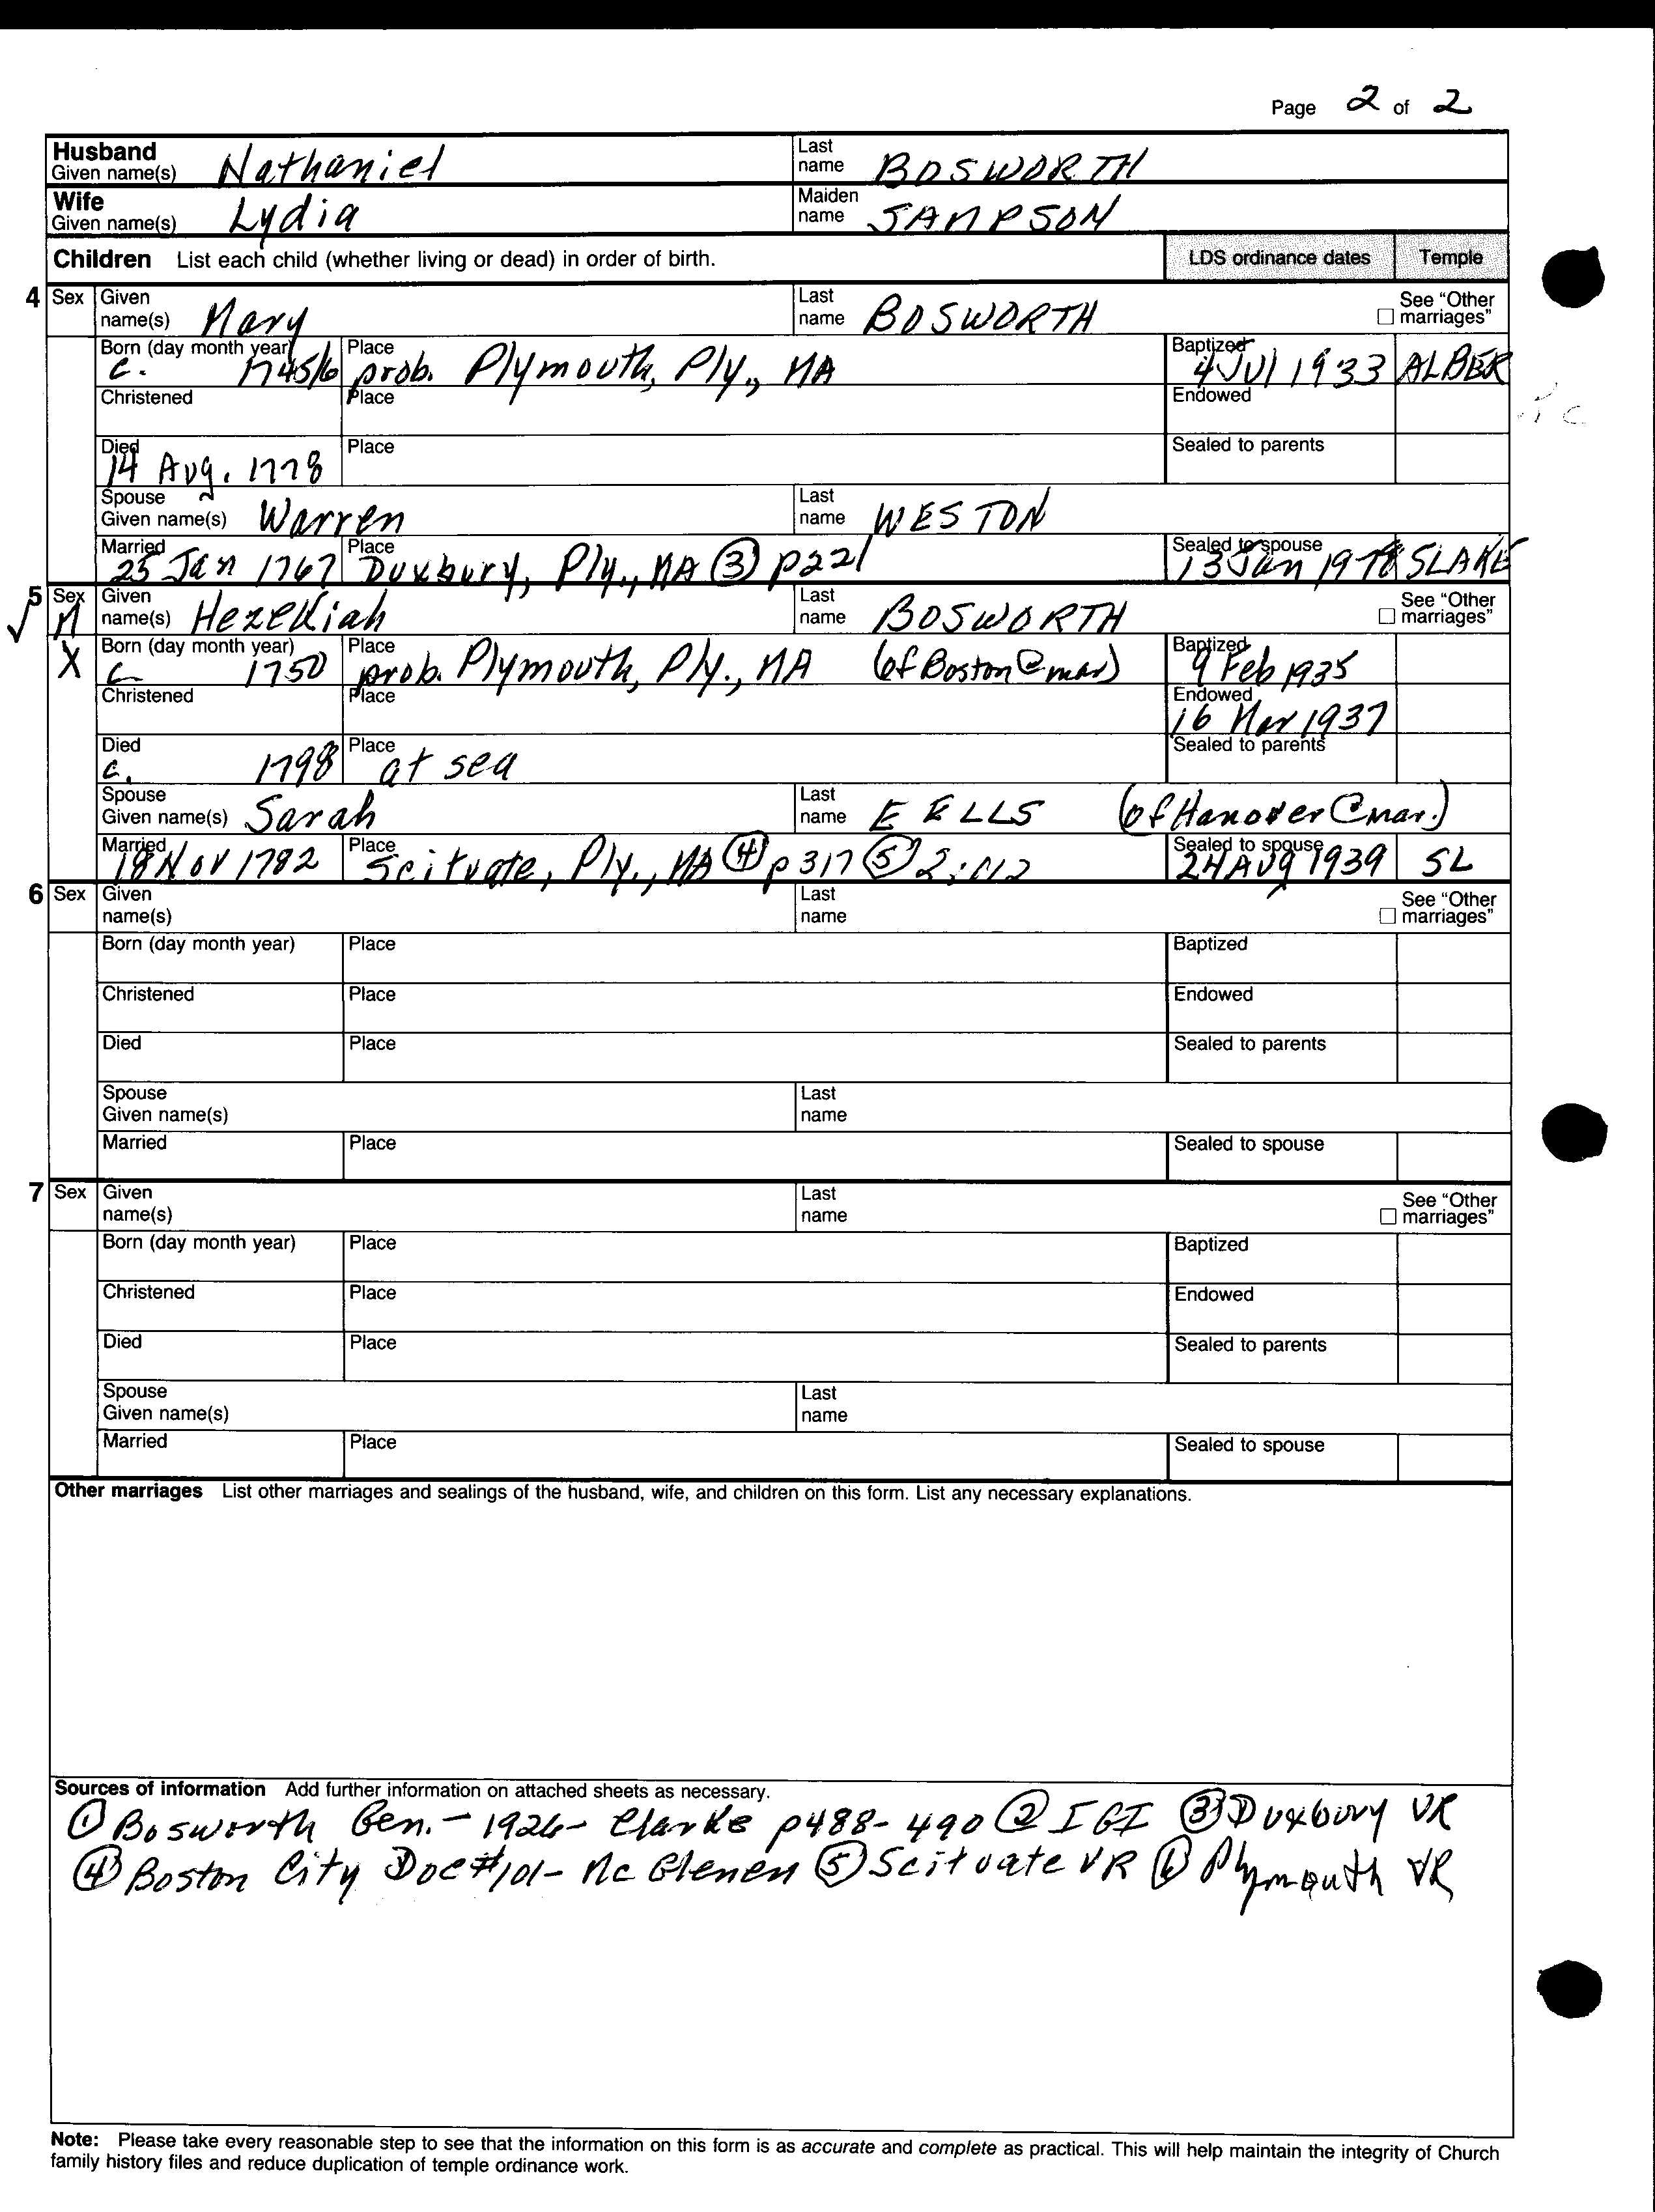 Page 2 of 2
Husband Given name(s) Nathaniel Last name BOSWORTH
Wife Given name(s) Lydia Maiden name SAMPSON
Children List each child (whether living or dead) in order of birth. LDS ordinance dates Temple
4 Sex Given name(s) Mary Last name BOSWORTH See "Other marriages"
Born (day month year) c. 1745/6 Place prob. Plymouth, Ply., MA Baptized 4 Jul 1933 ALBER
Christened Place Endowed
Died 14 Aug. 1778 Place Sealed to parents
Spouse Given name(s) Warren Last name WESTON
Married 25 Jan 1767 Place Duxbury, Ply., MA (3) p221 Sealed to spouse 13 Jan 1978 SLAKE
5 Sex M Given name(s) Hezekiah Last name BOSWORTH See "Other marriages"
X Born (day month year) c 1750 Place prob. Plymouth, Ply., MA (of Boston @ mar) Baptized 9 Feb 1935
Christened Place Endowed 16 Mar 1937
Died c. 1798 Place at sea Sealed to parents
Spouse Given name(s) Sarah Last name EELLS (of Hanover @ mar.)
Married 18 Nov 1782 Place Scituate, Ply., MA (4) p317 (5) Sealed to spouse 24 Aug 1939 SL
6 Sex Given name(s) Last name See "Other marriages"
Born (day month year) Place Baptized
Christened Place Endowed
Died Place Sealed to parents
Spouse Given name(s) Last name
Married Place Sealed to spouse
7 Sex Given name(s) Last name See "Other marriages"
Born (day month year) Place Baptized
Christened Place Endowed
Died Place Sealed to parents
Spouse Given name(s) Last name
Married Place Sealed to spouse
Other marriages List other marriages and sealings of the husband, wife, and children on this form. List any necessary explanations.
Sources of information Add further information on attached sheets as necessary.
(1) Bosworth Gen. - 1926 - Clarke p488-490 (2) IGI (3) Duxbury VR
(4) Boston City Doc #101 - McGlenen (5) Scituate VR (6) Plymouth VR
Note: Please take every reasonable step to see that the information on this form is as accurate and complete as practical. This will help maintain the integrity of Church
family history files and reduce duplication of temple ordinance work.